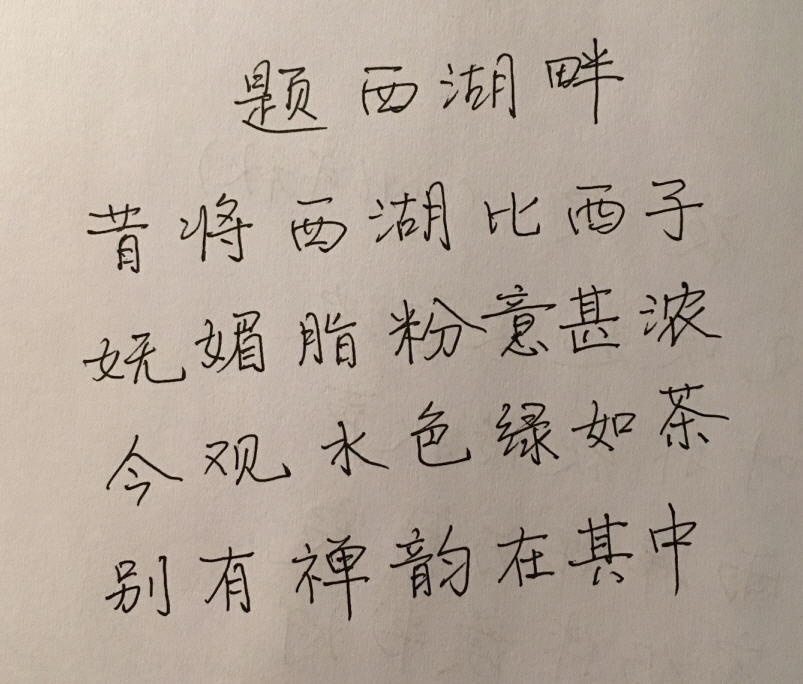 题西湖畔
昔将西湖比西子
妩媚脂粉意甚浓
今观水色绿如茶
别有禅韵在其中